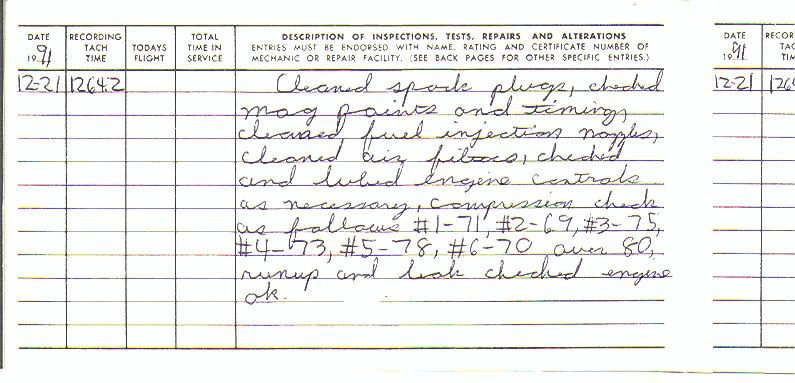 DATE
19 91
RECORDING
TACH
TIME
TODAYS
FLIGHT
TOTAL
TIME IN
SERVICE
DESCRIPTION OF INSPECTIONS, TESTS, REPAIRS AND ALTERATIONS
ENTRIES MUST BE ENDORSED WITH NAME, RATING AND CERTIFICATE NUMBER OF
MECHANIC OR REPAIR FACILITY. (SEE BACK PAGES FOR OTHER SPECIFIC ENTRIES.)
12-21 1264.2 Cleaned spark plugs, checked
mag points and timing,
cleaned fuel injection nozzles,
cleaned air filters, checked
and lubed engine controls
as necessary, compression check
as follows #1-71, #2-69, #3-75,
#4-73, #5-78, #6-70 over 80,
runup and leak checked engine
ok.
DATE
19 91
RECOR
TA
TIM
12-21 126